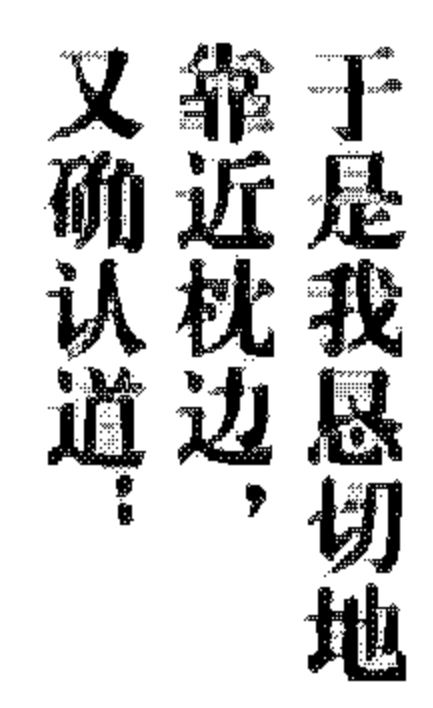 于是我恳切地
靠近枕边，
又确认道：